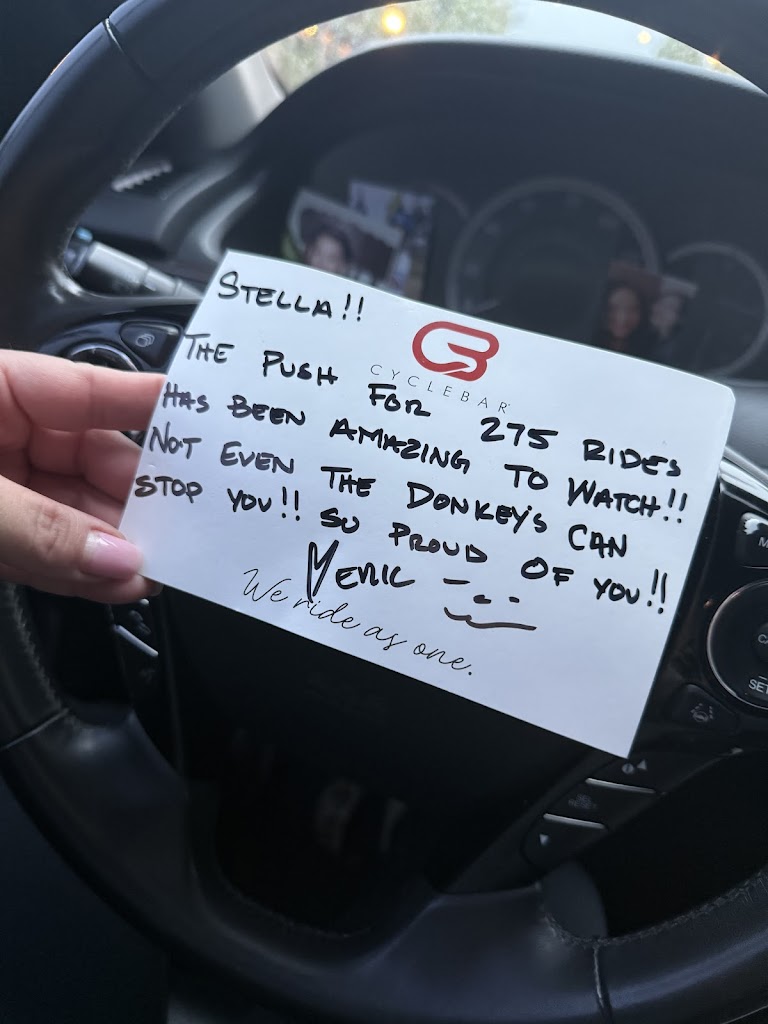 STELLA!!
CYCLEBAR
THE PUSH FOR 275 RIDES
HAS BEEN AMAZING TO WATCH!!
NOT EVEN THE DONKEY'S CAN
STOP YOU!! SO PROUD OF YOU!!
We ride as one.
SET